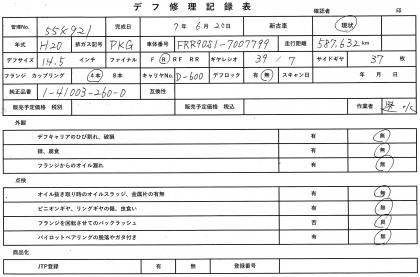 デフ修理記録表
確認者 印
管理No. 55K921 完成日 7年 6月 20日 新古車 現状
年式 H20 排ガス記号 PKG 車体番号 FRR90S1-7007799 走行距離 587,632 km
デフサイズ 14.5 インチ ファイナル F R RF RR ギヤレシオ 39 / 7 サイドギヤ 37 枚
フランジ カップリング 4本 8本 キャリヤNo. D-600 デフロック 有 無 スキャン日 年 月 日
純正品番 1-41003-260-0 互換性
販売予定価格 税別 販売予定価格 税込 作業者
外観
デフキャリアのひび割れ、破損 有 無
錆、腐食 有 無
フランジからのオイル漏れ 有 無
点検
オイル抜き取り時のオイルスラッジ、金属片の有無 有 無
ピニオンギヤ、リングギヤの錆、虫食い 有 無
フランジを回転させてのバックラッシュ 否 良
パイロットベアリングの脱落やガタ付き 有 無
商品化
JTP登録 有 無 登録番号